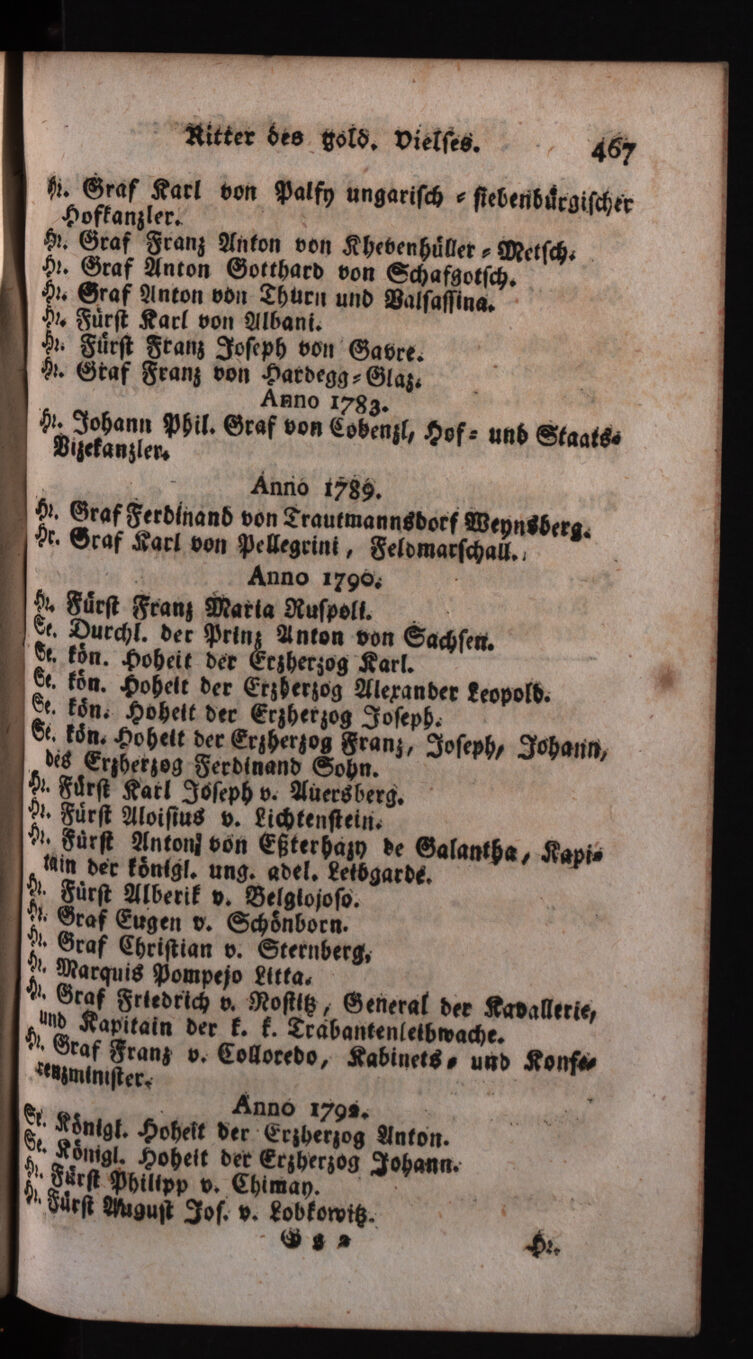 Ritter des gold. Vielses. 467
Hr. Graf Karl von Palfy ungarisch-siebenbürgischer
Hofkanzler.
Hr. Graf Franz Anton von Khevenhüller-Metsch.
Hr. Graf Anton Gotthard von Schafgotsch.
Hr. Graf Anton von Thurn und Valsassina.
Hr. Fürst Karl von Albani.
Hr. Fürst Franz Joseph von Gavre.
Hr. Graf Franz von Hardegg-Glaz.
Anno 1783.
Hr. Johann Phil. Graf von Cobenzl, Hof- und Staats-
Vizekanzler.
Anno 1789.
Hr. Graf Ferdinand von Trautmannsdorf Weynsberg.
Hr. Graf Karl von Pellegrini, Feldmarschall.
Anno 1790.
Hr. Fürst Franz Maria Ruspoli.
Se. Durchl. der Prinz Anton von Sachsen.
Se. kön. Hoheit der Erzherzog Karl.
Se. kön. Hoheit der Erzherzog Alexander Leopold.
Se. kön. Hoheit der Erzherzog Joseph.
Se. kön. Hoheit der Erzherzog Franz, Joseph, Johann,
des Erzherzog Ferdinand Sohn.
Hr. Fürst Karl Joseph v. Auersberg.
Hr. Fürst Aloisius v. Lichtenstein.
Hr. Fürst Anton von Eßterhazy de Galantha, Kapi-
tain der königl. ung. adel. Leibgarde.
Hr. Fürst Alberik v. Belgiojoso.
Hr. Graf Eugen v. Schönborn.
Hr. Graf Christian v. Sternberg.
Hr. Marquis Pompejo Litta.
Hr. Graf Friedrich v. Nostitz, General der Kavallerie,
und Kapitain der k. k. Trabantenleibwache.
Hr. Graf Franz v. Colloredo, Kabinets- und Konfe-
renzminister.
Anno 1792.
Se. Königl. Hoheit der Erzherzog Anton.
Se. Königl. Hoheit der Erzherzog Johann.
Hr. Fürst Philipp v. Chimay.
Hr. Fürst August Jos. v. Lobkowitz.
G g 2 Hr.